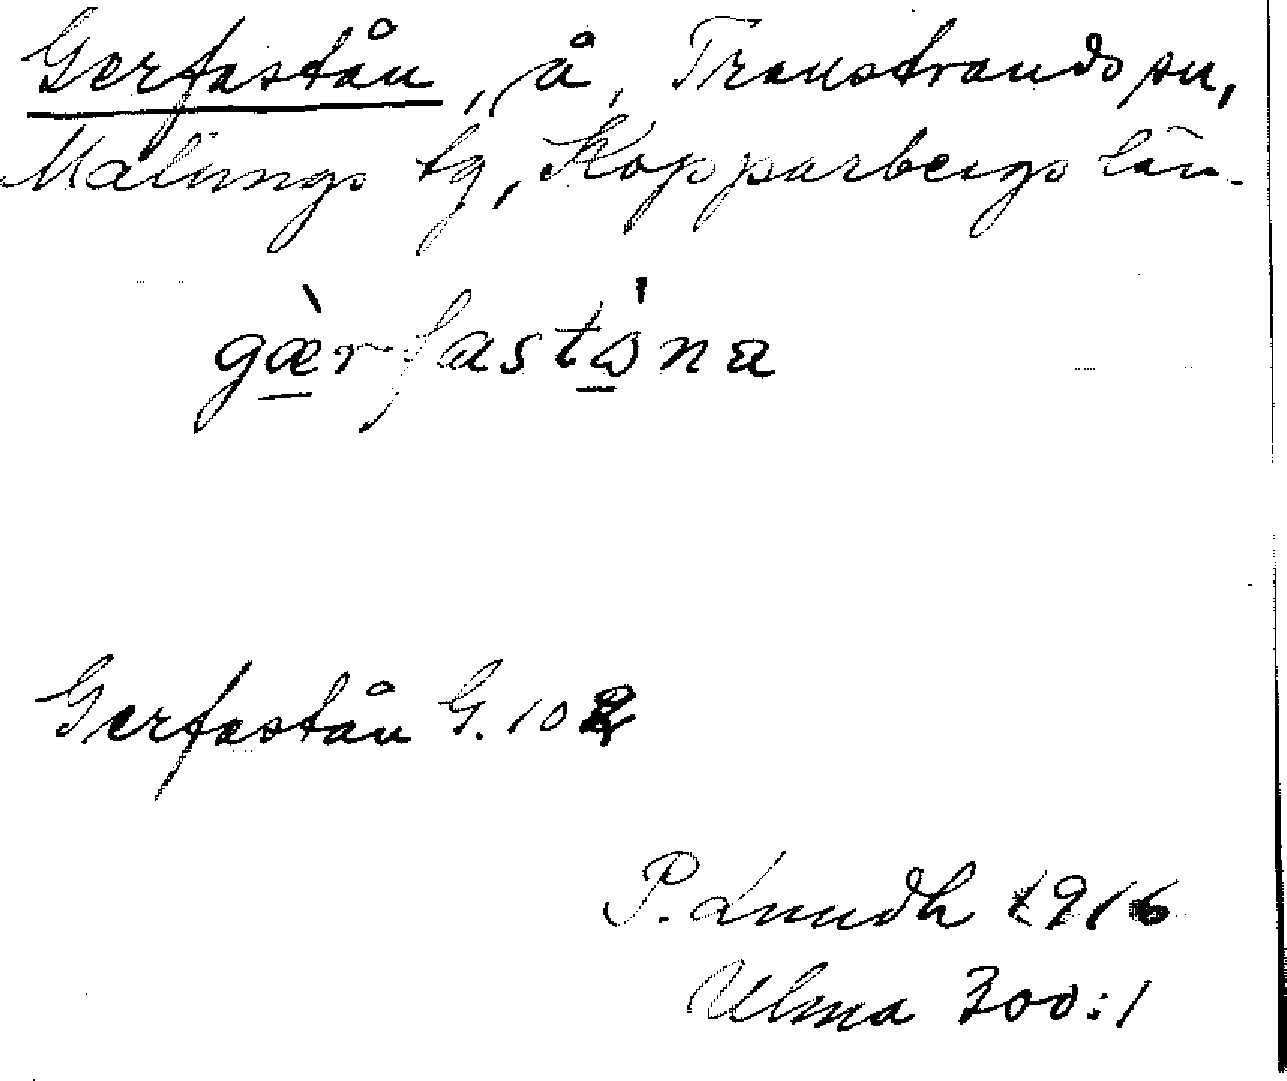 Gerfastån, å, Transtrands sn,
Malungs tg, Kopparbergs län.
gæ̀rfastǻna
Gerfastån G. 102
P. Lundh 1916
Ulma 300:1